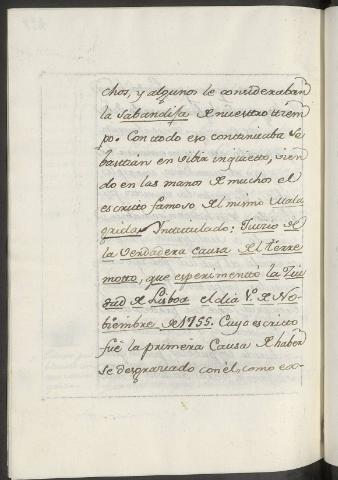 chos, y algunos le consideraban
la Sabandija de nuestro tiem
po. Con todo eso continuaba Se
bastian en vibir inquieto, vien
do en las manos de muchos el
escrito famoso del mismo Mala
grida, Intitulado: Juicio de
la verdadera causa del terre
motto, que esperimentó la Ciu
dad de Lisboa el dia 1.º de No-
biembre de 1755. Cuyo escrito
fué la primera Causa de haber
se desgraciado con él, como ex-